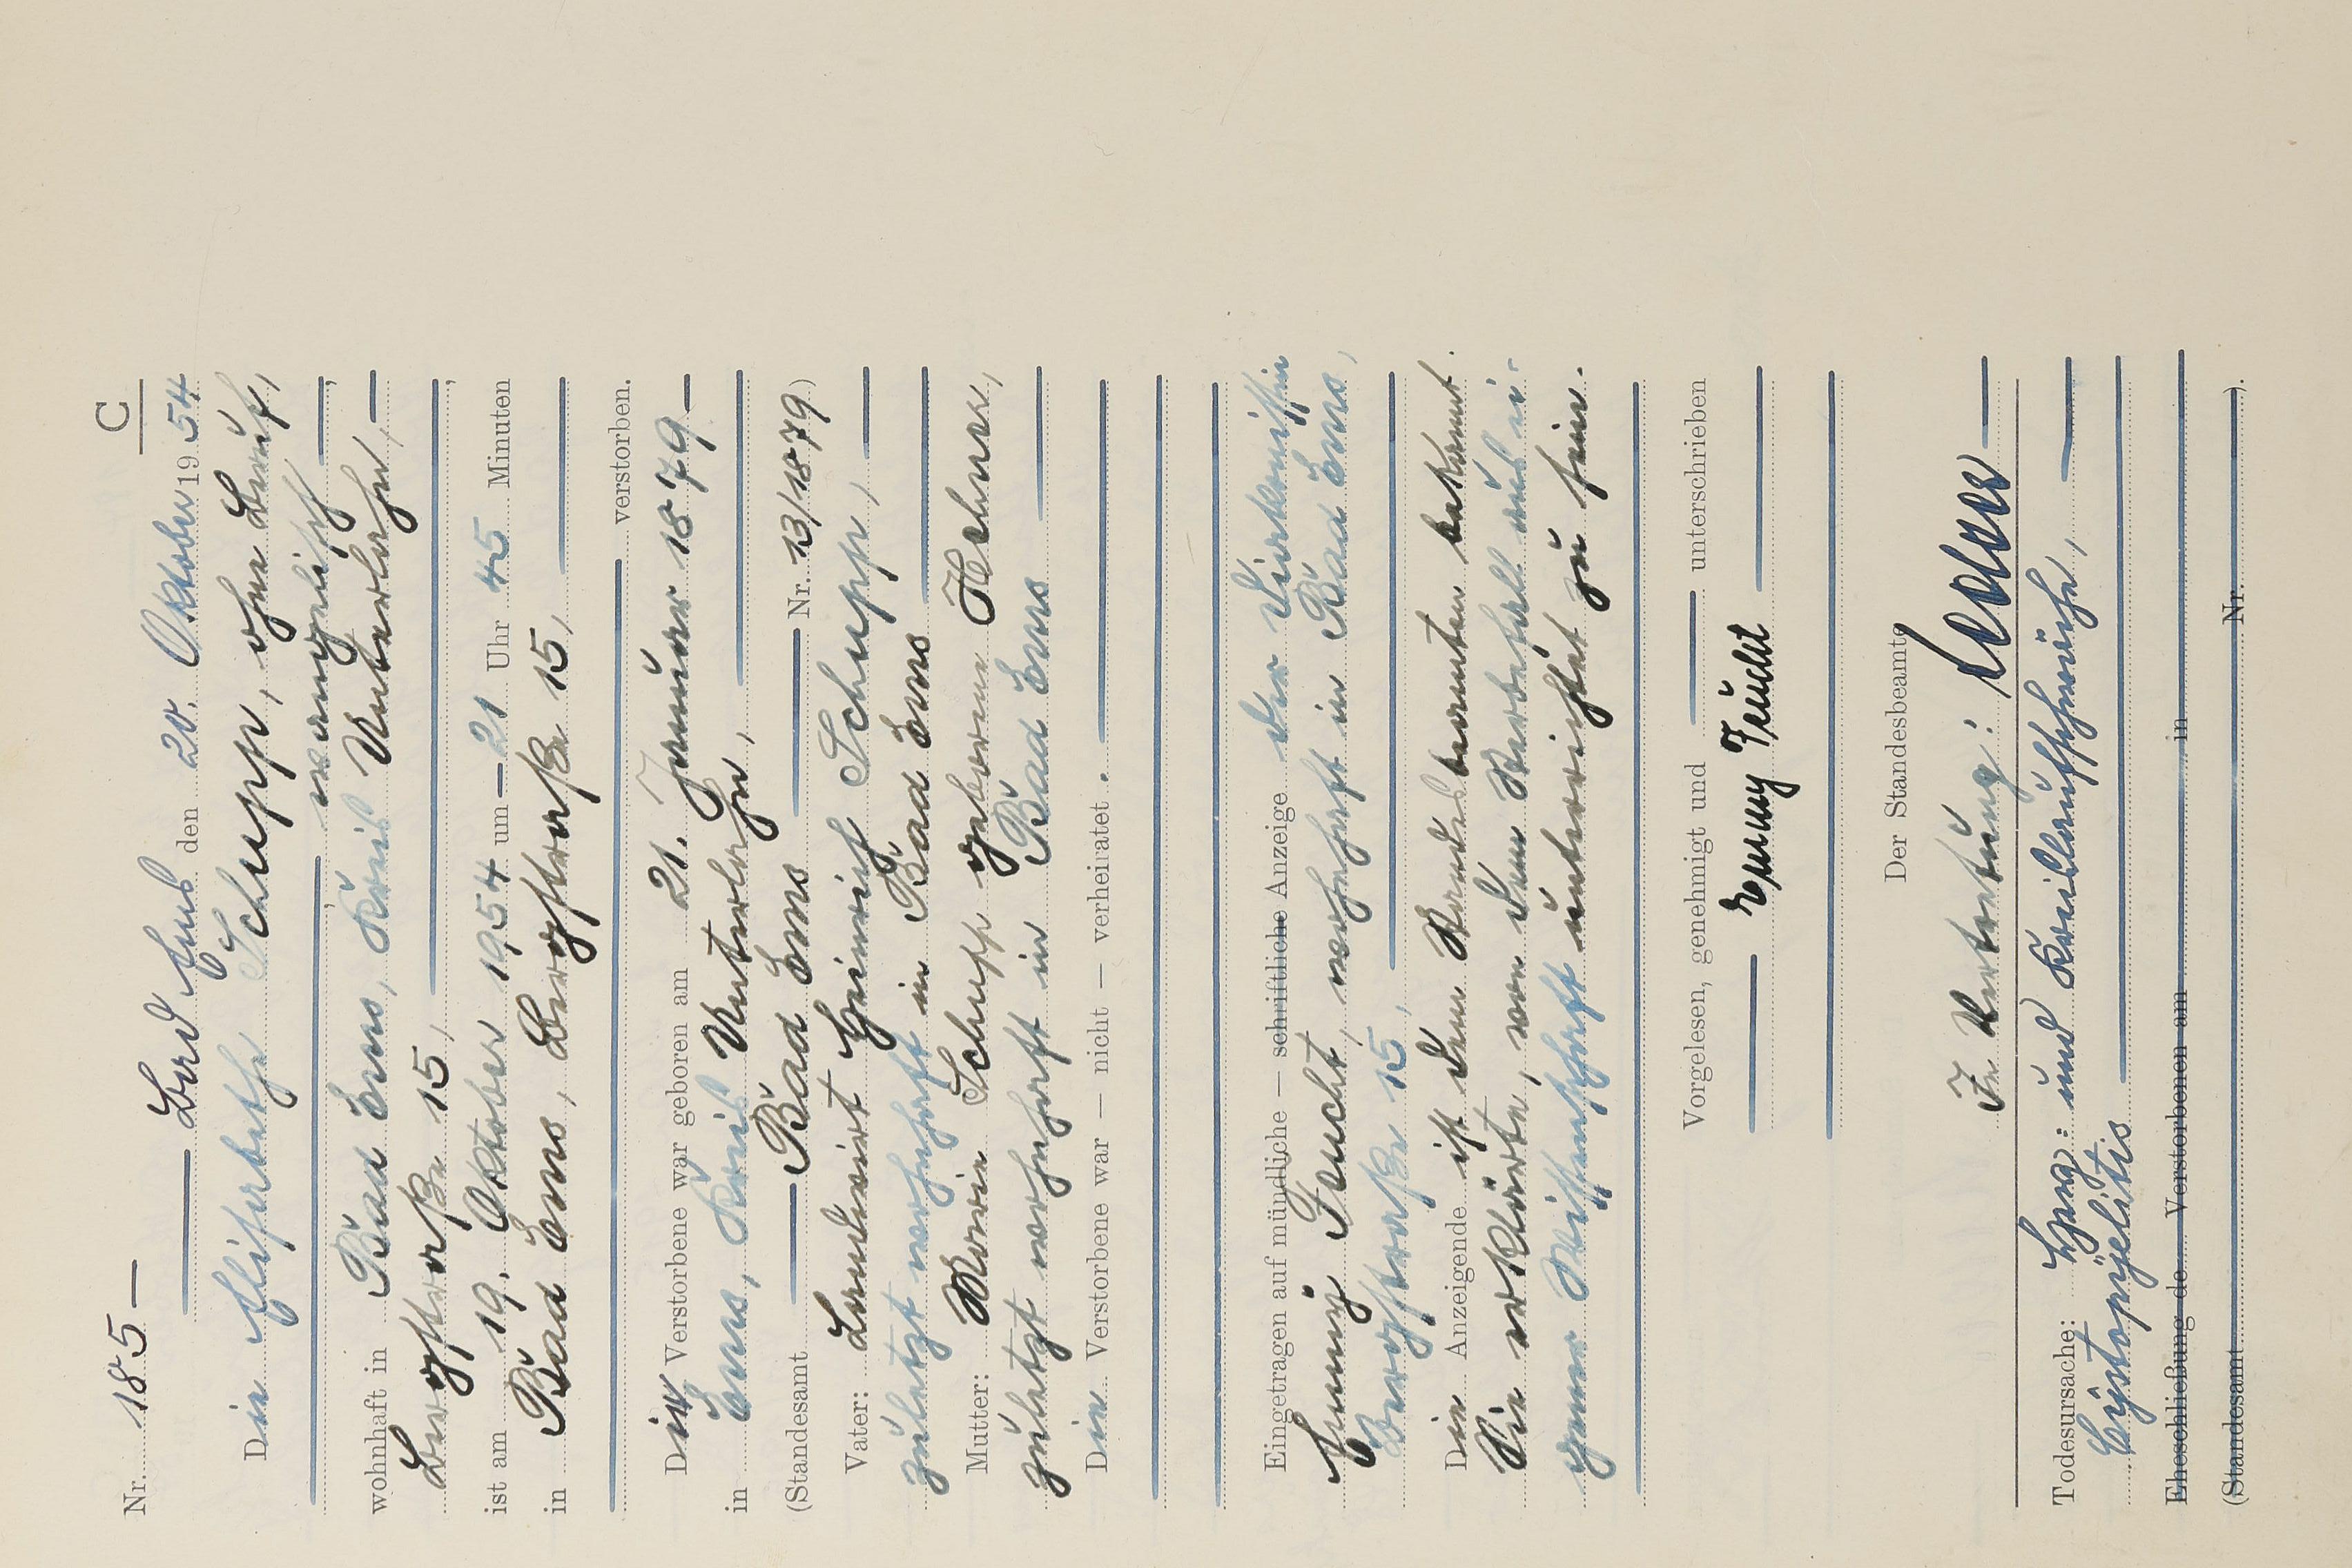 C
Nr. 185 —
Bad Ems den 20. Oktober 1954
Die Elisabeth Schupp, ohne Beruf,
— evangelisch —
wohnhaft in Bad Ems, Kreis Unterlahn, —
Bergstraße 15,
ist am 19. Oktober 1954 um — 21 Uhr 45 Minuten
in Bad Ems, Bergstraße 15,
verstorben.
Die Verstorbene war geboren am 21. Januar 1879 —
in Ems, Kreis Unterlahn,
(Standesamt Bad Ems Nr. 13/1879)
Vater: Landwirt Heinrich Schupp,
zuletzt wohnhaft in Bad Ems
Mutter: Marie Schupp geborene
zuletzt wohnhaft in Bad Ems
Die Verstorbene war — nicht — verheiratet.
Eingetragen auf mündliche — schriftliche Anzeige der Diakonissin
Emmy Feucht, wohnhaft in Bad Ems,
Bergstraße 15,
Die Anzeigende ist dem Standesbeamten bekannt.
Sie erklärte, von dem Sterbefall aus ei-
gener Wissenschaft unterrichtet zu sein.
Vorgelesen, genehmigt und unterschrieben
Emmy Feucht
Der Standesbeamte
In Vertretung:
Todesursache: Herz- und Kreislaufschwäche,
Cystopyelitis
Eheschließung de Verstorbenen am in
(Standesamt Nr. ).